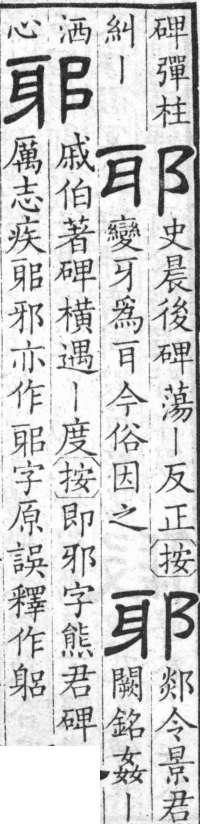 碑彈柱
糾丨
耶
史晨後碑蕩丨反正按
變牙爲耳今俗因之
耶
郯令景君
闕銘姦丨
洒
心
耶
戚伯著碑橫遇丨度按即邪字熊君碑
厲志疾耶邪亦作耶字原誤釋作躳